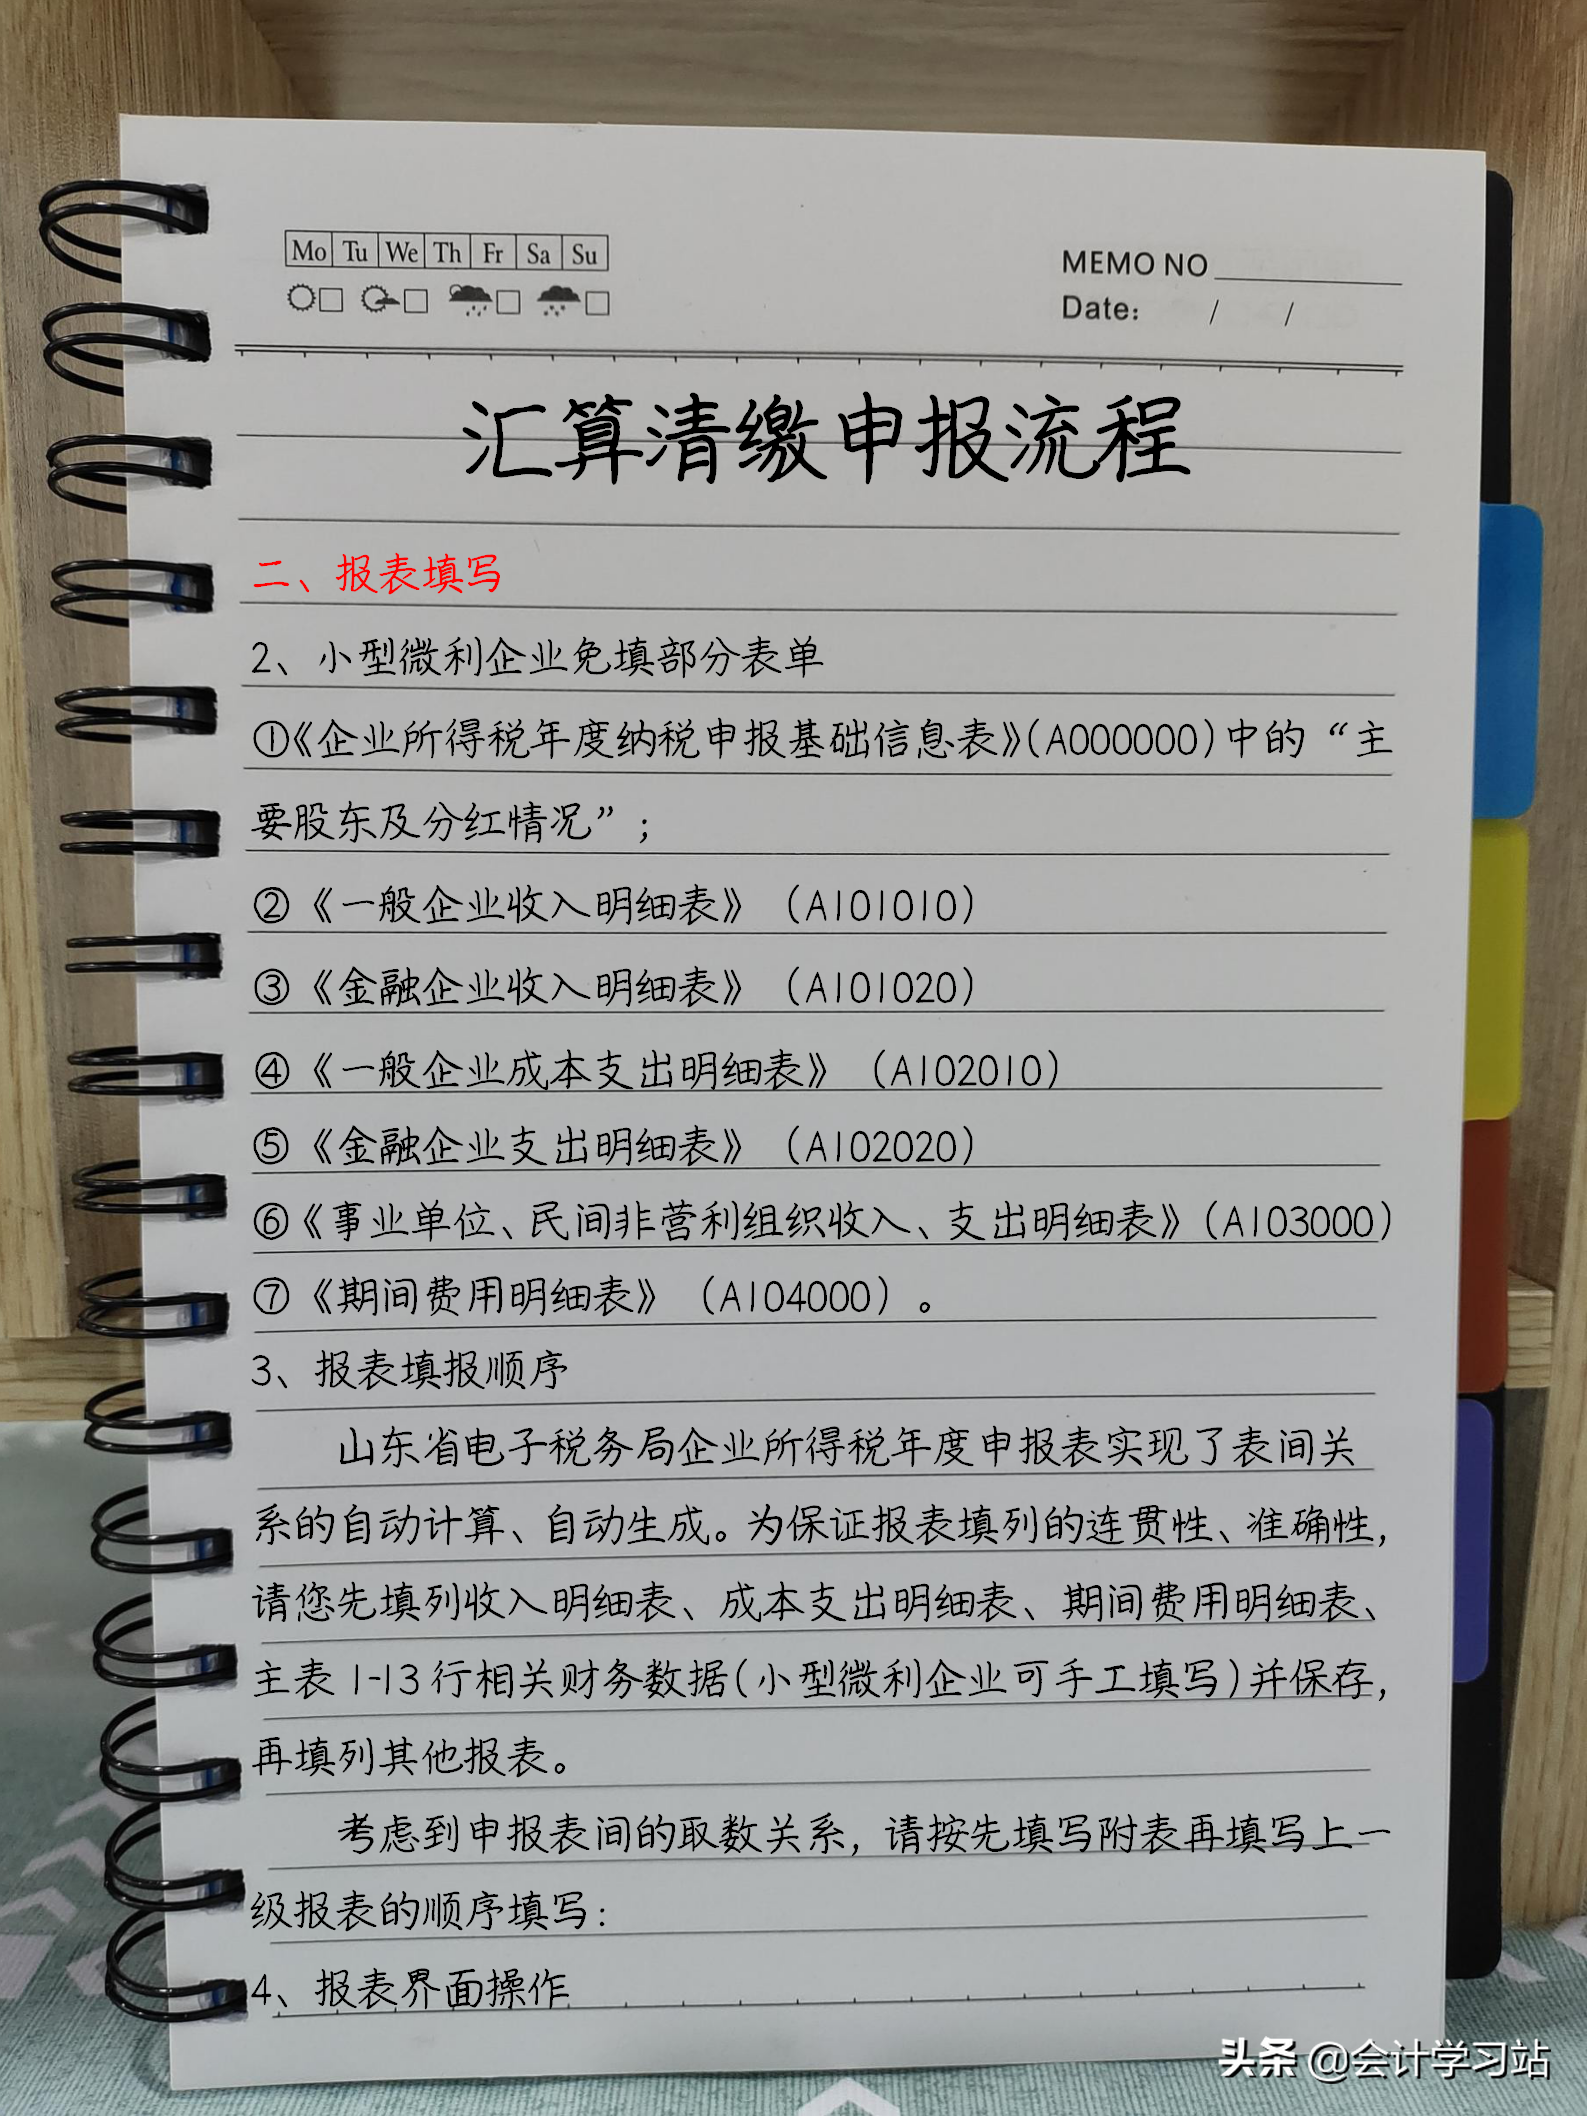 Mo Tu We Th Fr Sa Su
MEMO NO
Date: / /
汇算清缴申报流程
二、报表填写
2、小型微利企业免填部分表单
①《企业所得税年度纳税申报基础信息表》(A000000)中的“主
要股东及分红情况”;
②《一般企业收入明细表》（A101010）
③《金融企业收入明细表》（A101020）
④《一般企业成本支出明细表》（A102010）
⑤《金融企业支出明细表》（A102020）
⑥《事业单位、民间非营利组织收入、支出明细表》(A103000)
⑦《期间费用明细表》（A104000）。
3、报表填报顺序
山东省电子税务局企业所得税年度申报表实现了表间关
系的自动计算、自动生成。为保证报表填列的连贯性、准确性,
请您先填列收入明细表、成本支出明细表、期间费用明细表、
主表 1-13 行相关财务数据(小型微利企业可手工填写)并保存,
再填列其他报表。
考虑到申报表间的取数关系, 请按先填写附表再填写上一
级报表的顺序填写:
4、报表界面操作
头条 @会计学习站